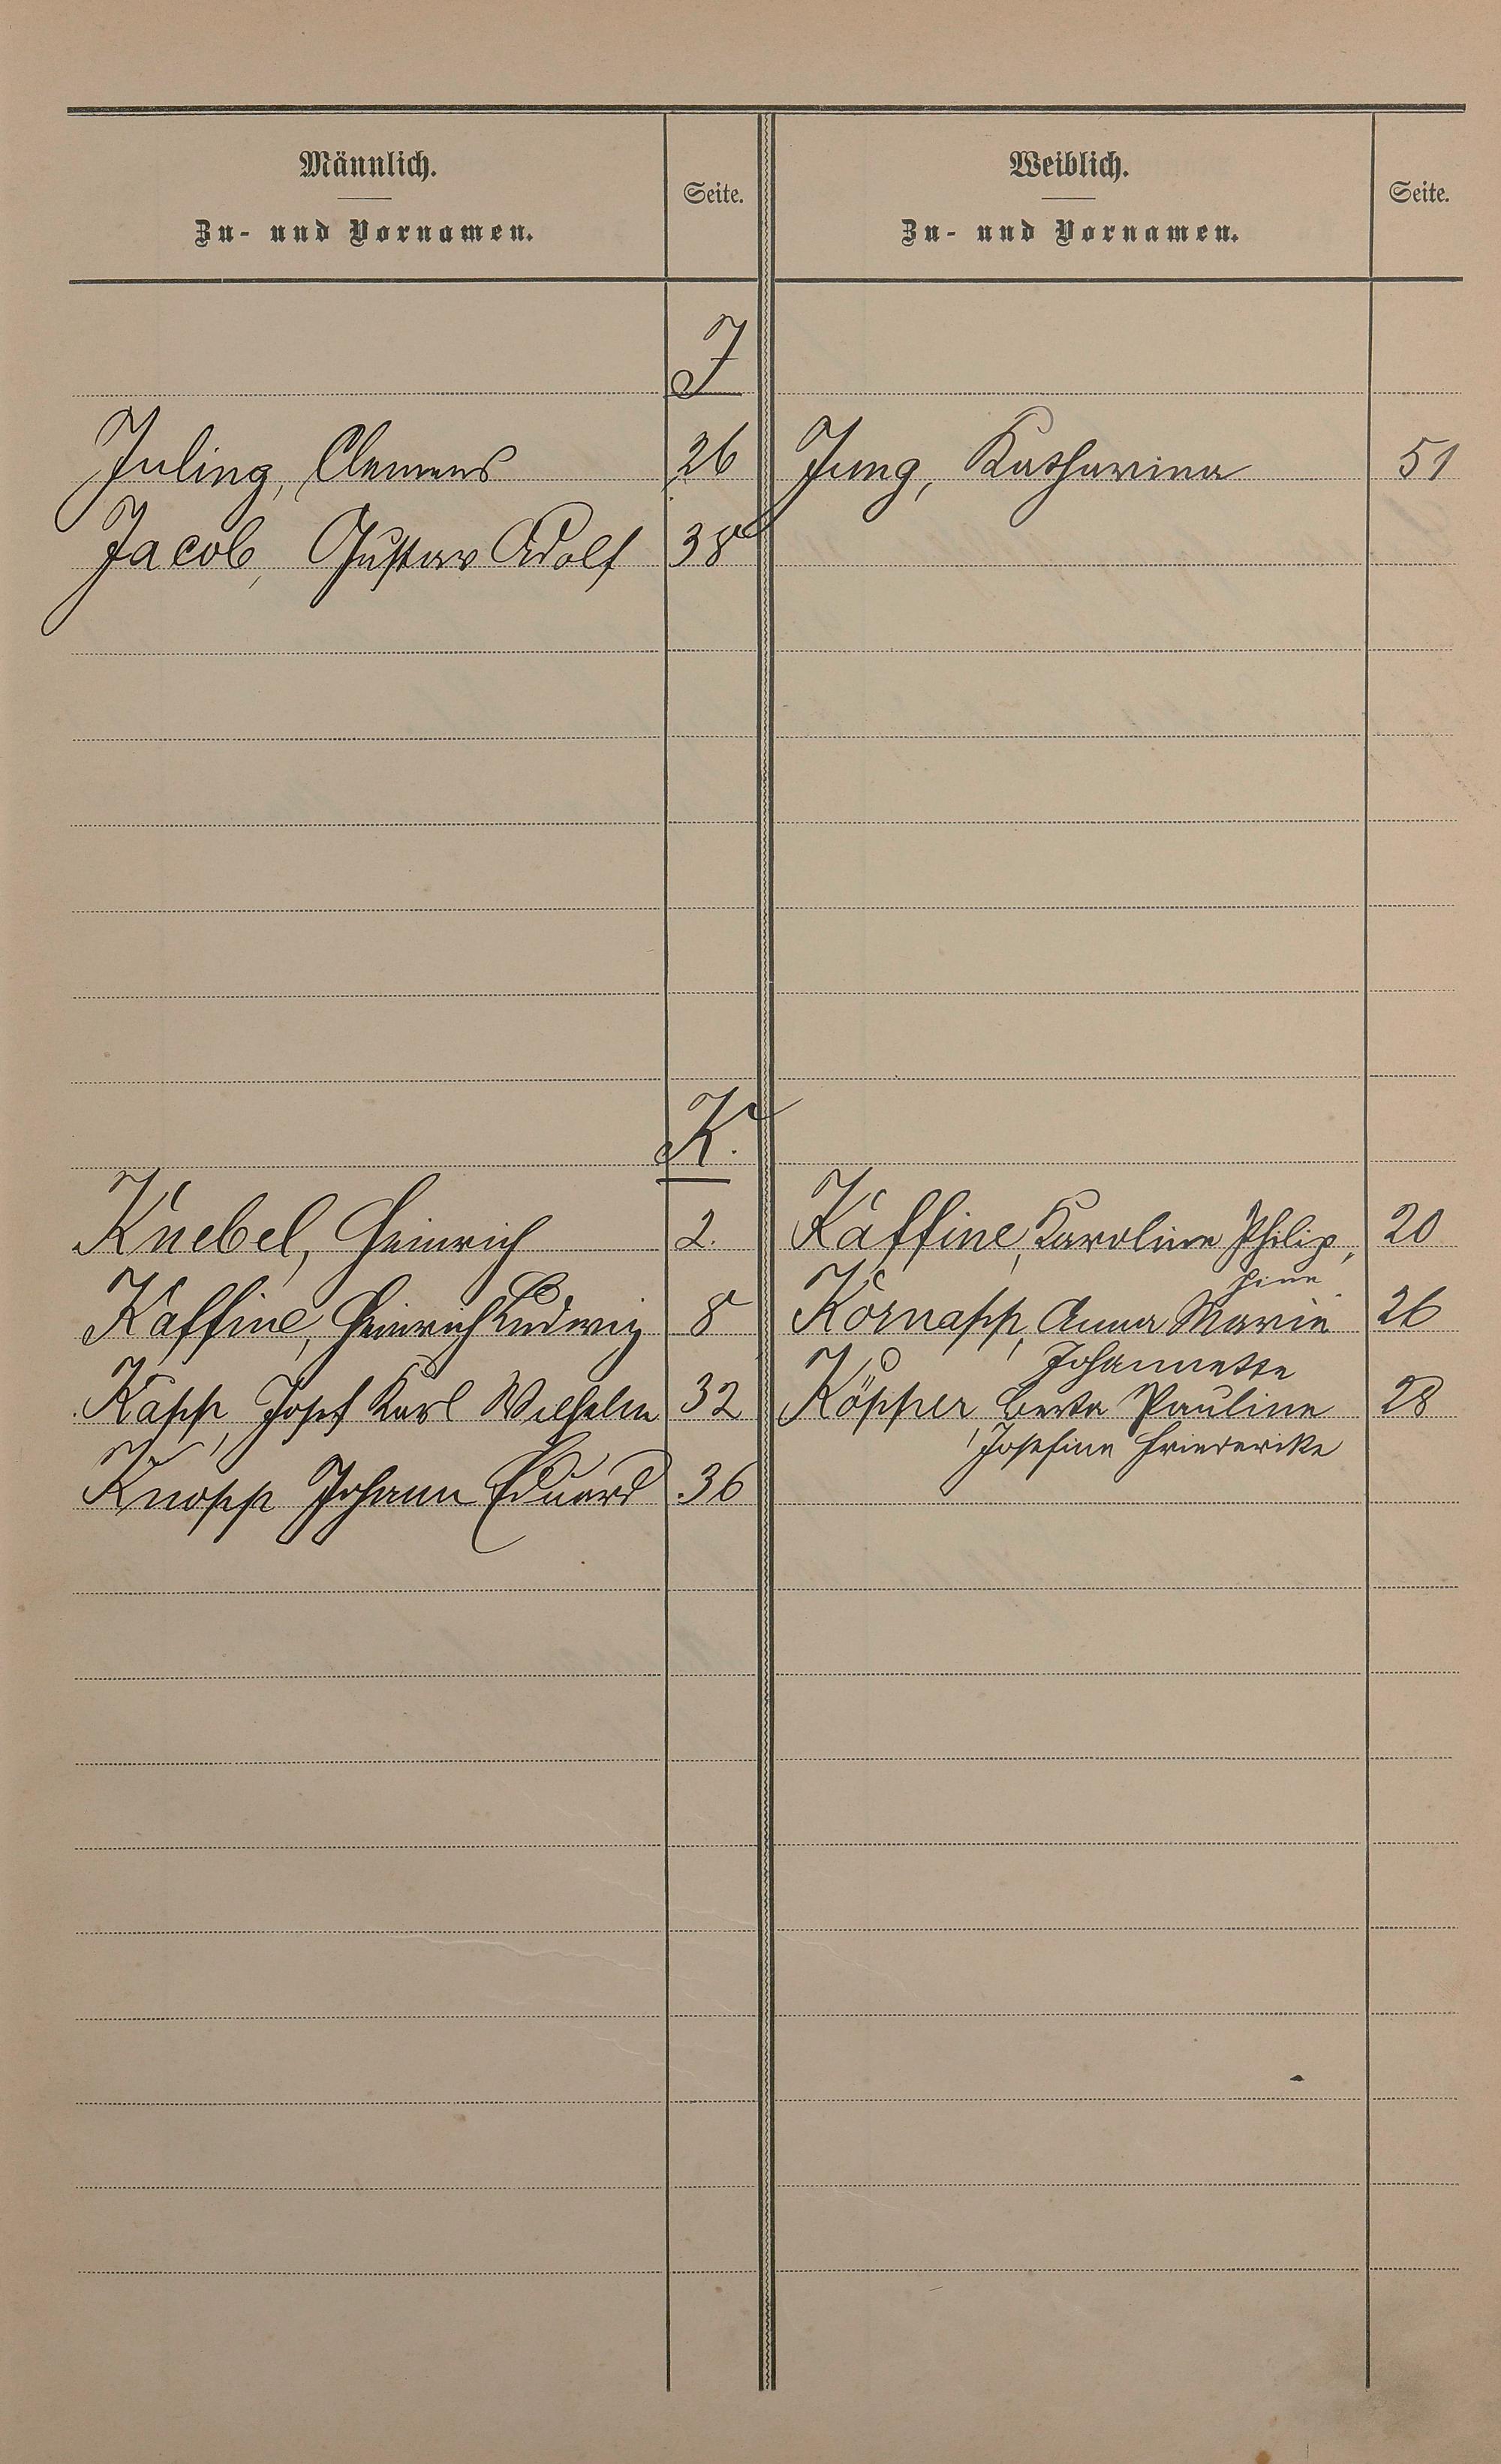 Männlich.
Zu- und Vornamen.
Seite.
Weiblich.
Zu- und Vornamen.
Seite.
J
Juling, Clemens 26 Jung, Katharina 51
Jacob, Gustav Adolf 38
K.
Knebel, Heinrich 2. Kaffine, Karoline Philip, 20
pine
Kaffine, Heinrich Ludwig 8 Körnapp, Anna Maria 26
Johannette
Kapp, Josef Karl Wilhelm 32 Köpper, Berta Pauline 28
Josefine Friederike
Knopp Johann Eduard 36